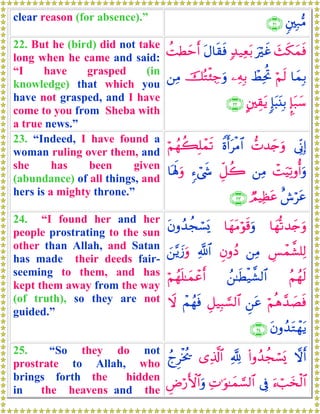 clear reason (for absence).”
مُّبِينٍ ﴿٢١﴾
22. But he (bird) did not take
long when he came and said:
“I have grasped (in
knowledge) that which you
have not grasped, and I have
come to you from Sheba with
a true news.”
فَمَكَثَ غَيْرَ بَعِيدٍ فَقَالَ أَحَطتُ
بِمَا لَمْ تُحِطْ بِهِۦ وَجِئْتُكَ مِن
سَبَإٍۭ بِنَبَإٍ يَقِينٍ ﴿٢٢﴾
23. “Indeed, I have found a
woman ruling over them, and
she has been given
(abundance) of all things, and
hers is a mighty throne.”
إِنِّى وَجَدتُّ ٱمْرَأَةً تَمْلِكُهُمْ
وَأُوتِيَتْ مِن كُلِّ شَىْءٍ وَلَهَا
عَرْشٌ عَظِيمٌ ﴿٢٣﴾
24. “I found her and her
people prostrating to the sun
other than Allah, and Satan
has made their deeds fair-
seeming to them, and has
kept them away from the way
(of truth), so they are not
guided.”
وَجَدتُّهَا وَقَوْمَهَا يَسْجُدُونَ
لِلشَّمْسِ مِن دُونِ ٱللَّهِ وَزَيَّنَ
لَهُمُ ٱلشَّيْطَٰنُ أَعْمَٰلَهُمْ
فَصَدَّهُمْ عَنِ ٱلسَّبِيلِ فَهُمْ لَا
يَهْتَدُونَ ﴿٢٤﴾
25. “So they do not
prostrate to Allah, who
brings forth the hidden
in the heavens and the
أَلَّا يَسْجُدُوا۟ لِلَّهِ ٱلَّذِى يُخْرِجُ
ٱلْخَبْءَ فِى ٱلسَّمَٰوَٰتِ وَٱلْأَرْضِ